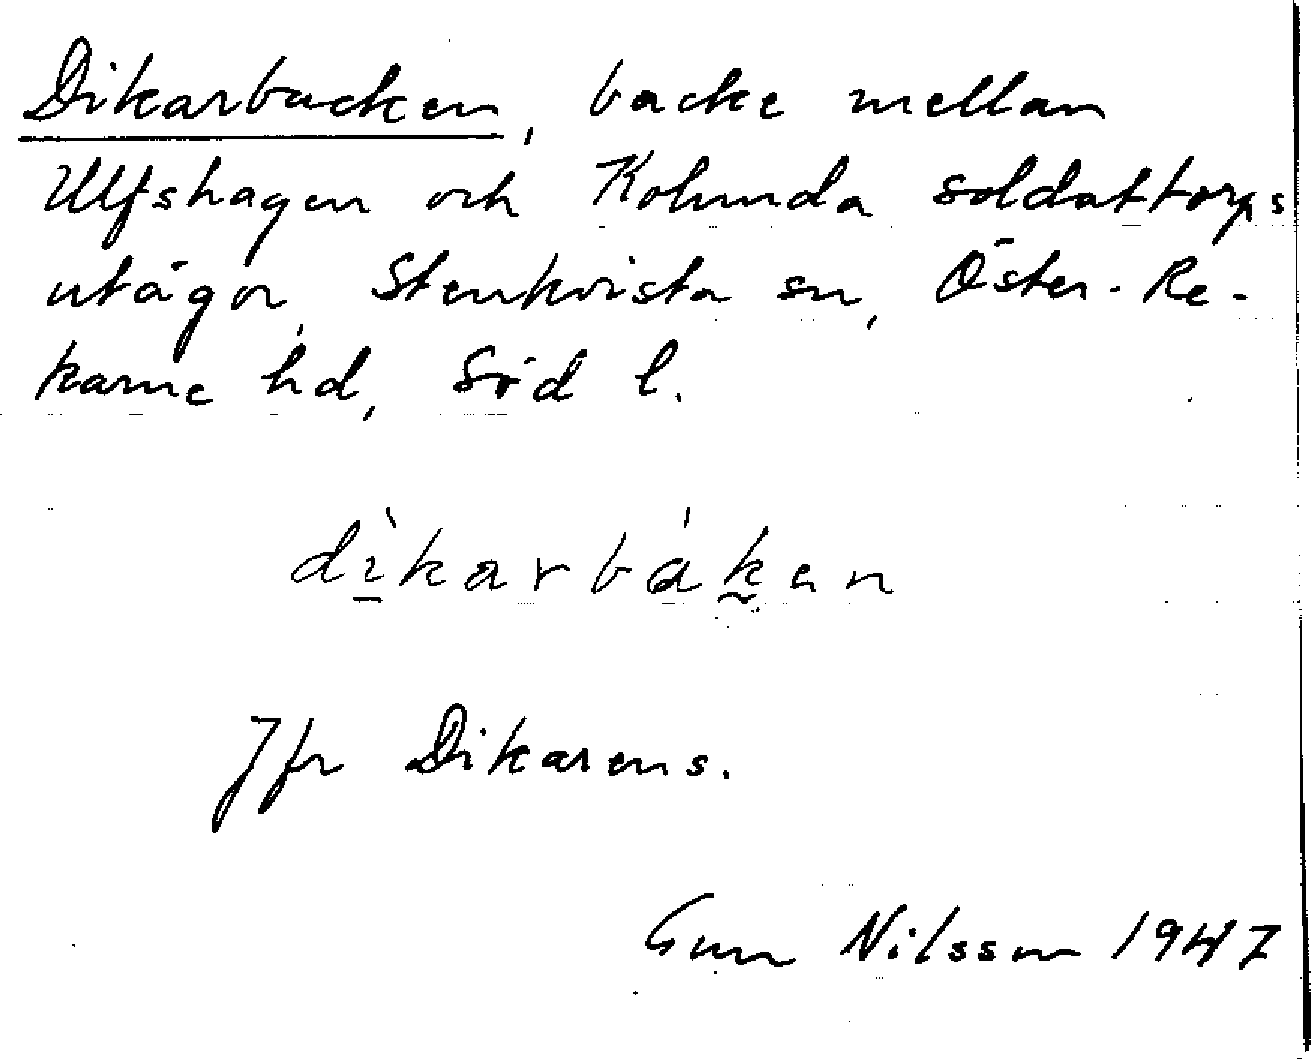 Dikarbacken, backe mellan
Ulfshagen och Kolunda soldattorps
utägor, Stenkvista sn, Öster-Re-
karne hd, Söd l.
dìkarbáken
Jfr Dikarens.
Gun Nilsson 1947